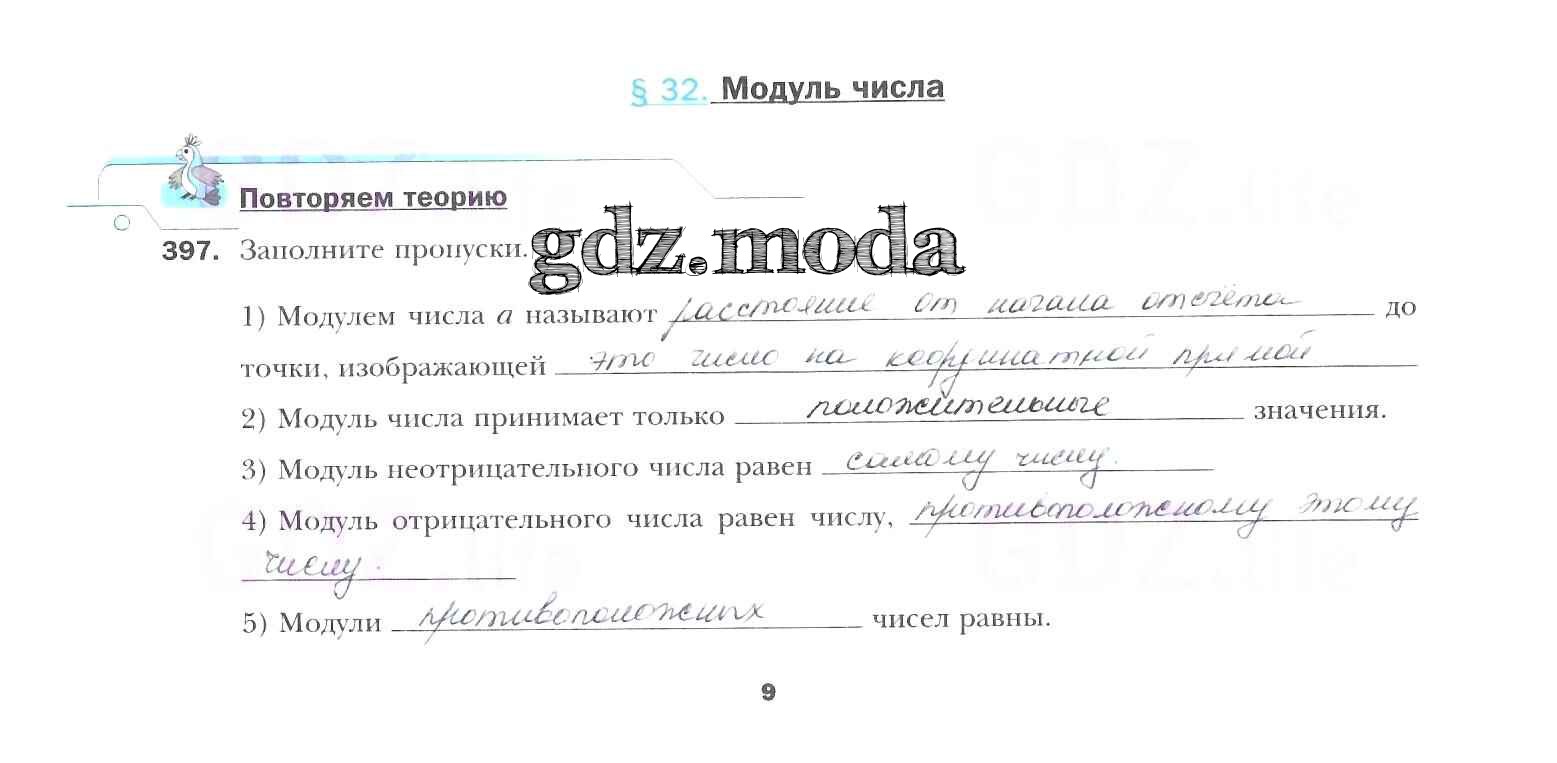 § 32. Модуль числа
Повторяем теорию
397. Заполните пропуски.
gdz.moda
1) Модулем числа a называют расстояние от начала отсчёта до
точки, изображающей это число на координатной прямой
2) Модуль числа принимает только положительные значения.
3) Модуль неотрицательного числа равен самому числу.
4) Модуль отрицательного числа равен числу, противоположному этому
числу.
5) Модули противоположных чисел равны.
9